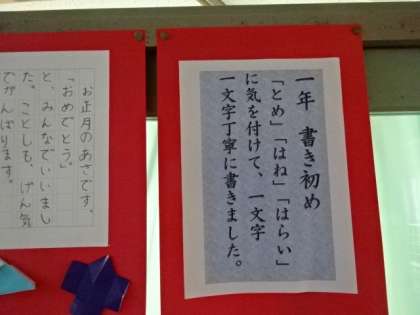 一年　書き初め
「とめ」「はね」「はらい」
に気を付けて、一文字
一文字丁寧に書きました。
お正月のあさです。
「おめでとう。」
と、みんなでいいまし
た。ことしも、げん気
でがんばります。